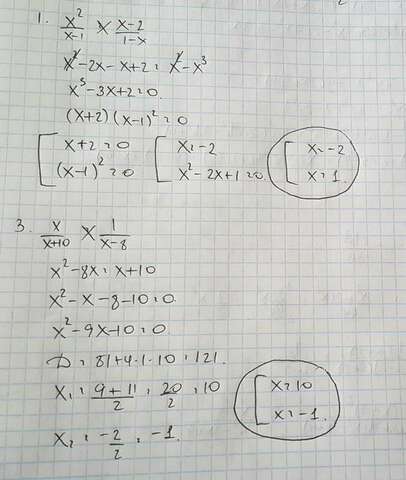 1. x²/(x-1) × (x-2)/(1-x)
x² - 2x - x + 2 = x² - x³
x³ - 3x + 2 = 0
(x+2)(x-1)² = 0
[ x+2=0 [ x=-2 [ x=-2
(x-1)²=0 x²-2x+1=0 x=1.
3. x/(x+10) × 1/(x-8)
x² - 8x = x + 10
x² - x - 8 - 10 = 0
x² - 9x - 10 = 0
D = 81 + 4·1·10 = 121.
x₁ = (9+11)/2 = 20/2 = 10 [ x=10
x₂ = -2/2 = -1. x=-1.